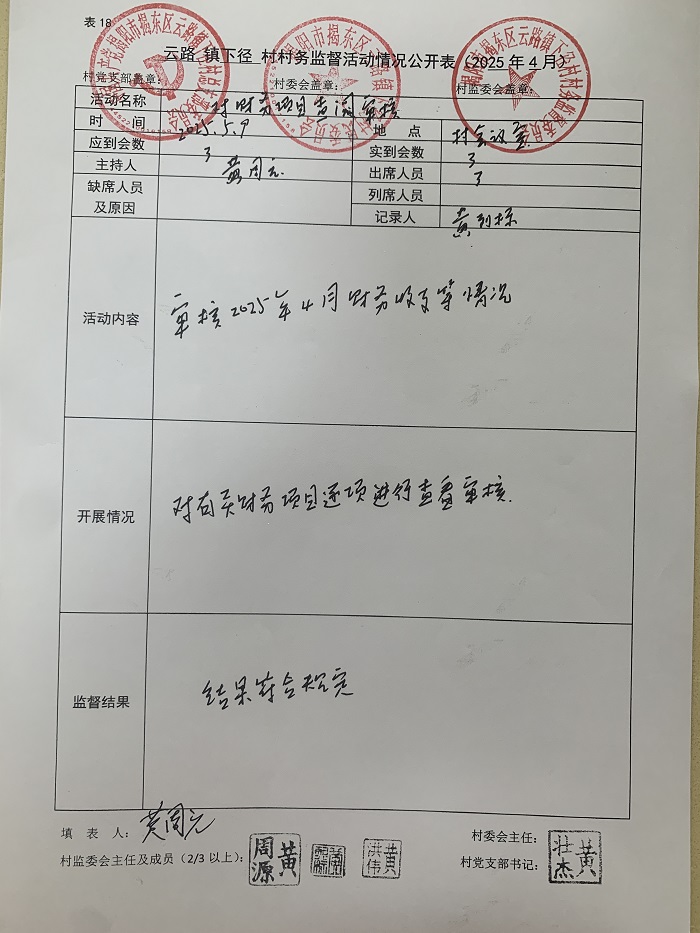 表 18
云路 镇下径 村村务监督活动情况公开表（2025 年 4 月）
村党支部盖章： 村委会盖章： 村监委会盖章：
活动名称 村财务项目查阅审核
时 间 2025.5.9 地 点 村会议室
应到会数 3 实到会数 3
主持人 黄周元 出席人员 3
缺席人员及原因 列席人员
记录人 黄列标
活动内容 审核2025年4月财务收支等情况
开展情况 对有关财务项目逐项进行查看审核.
监督结果 结果符合规定
填 表 人： 黄周元 村委会主任：
村监委会主任及成员（2/3 以上）： 黄周源 黄洪伟 村党支部书记： 黄壮杰